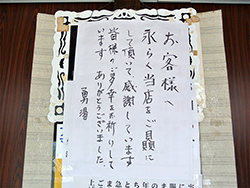 お客様へ
永らく当店をご贔屓に
して頂いて感謝しています
皆様のご多幸をお祈りして
います ありがとうございました
勇湯